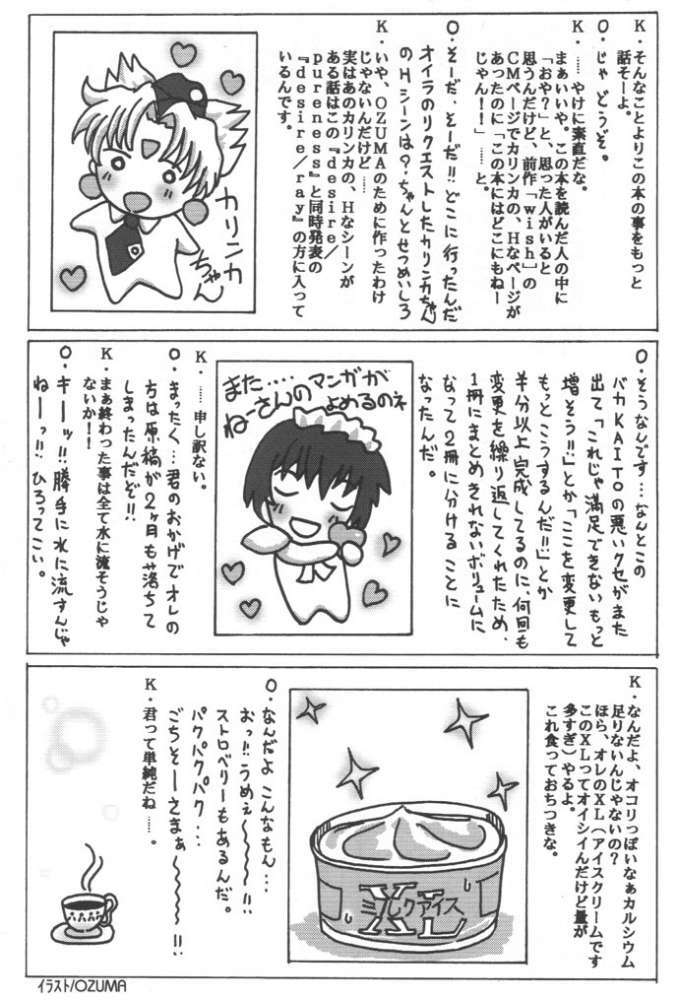 K．そんなことよりこの本の事をもっと
話そーよ。
O．じゃ どうぞ。
K．……やけに素直だな。
まぁいいや。この本を読んだ人の中に
「おや？」と、思った人がいると
思うんだけど、前作「wish」の
CMページでカリンカの、Hなページが
あったのに「この本にはどこにもねー
じゃん！！」……と。
O．そーだ、そーだ!!どこに行ったんだ
オイラのリクエストしたカリンカちゃん
のHシーンは?．ちゃんとせつめいしろ
K．いや、OZUMAのために作ったわけ
じゃないんだけど……
実はあのカリンカの、Hなシーンが
ある話はこの『desire／
pureness』と同時発表の
『desire／ray』の方に入って
いるんです。
カリンカ
ちゃん
O．そうなんです…なんとこの
バカKAITOの悪いクセがまた
出て「これじゃ満足できないもっと
増そう!!」とか「ここを変更して
もっとこうするんだ!!」とか
半分以上完成してるのに、何回も
変更を繰り返してくれたため、
1冊にまとめきれないボリュームに
なって2冊に分けることに
なったんだ。
また……マンガが
ねーさんの よめるのネ
K．……申し訳ない。
O．まったく…君のおかげでオレの
方は原稿が2ヶ月も落ちて
しまったんだぞ!!
K．まぁ終わった事は全て水に流そうじゃ
ないか！！
O．キーッ!!勝手に水に流すんじゃ
ねーっ!!ひろってこい。
K．なんだよ、オコリっぽいなぁカルシウム
足りないんじゃないの？
ほら、オレのXL（アイスクリームです
このXLってオイシイんだけど量が
多すぎ）やるよ。
これ食っておちつきな。
ミルクアイス
XL
O．なんだよ こんなもん…
おっ!!うめぇ〜〜〜!!
ストロベリーもあるんだ。
パクパクパク…
ごちそーさまぁ〜〜〜!!
K．君って単純だね……。
イラスト/OZUMA